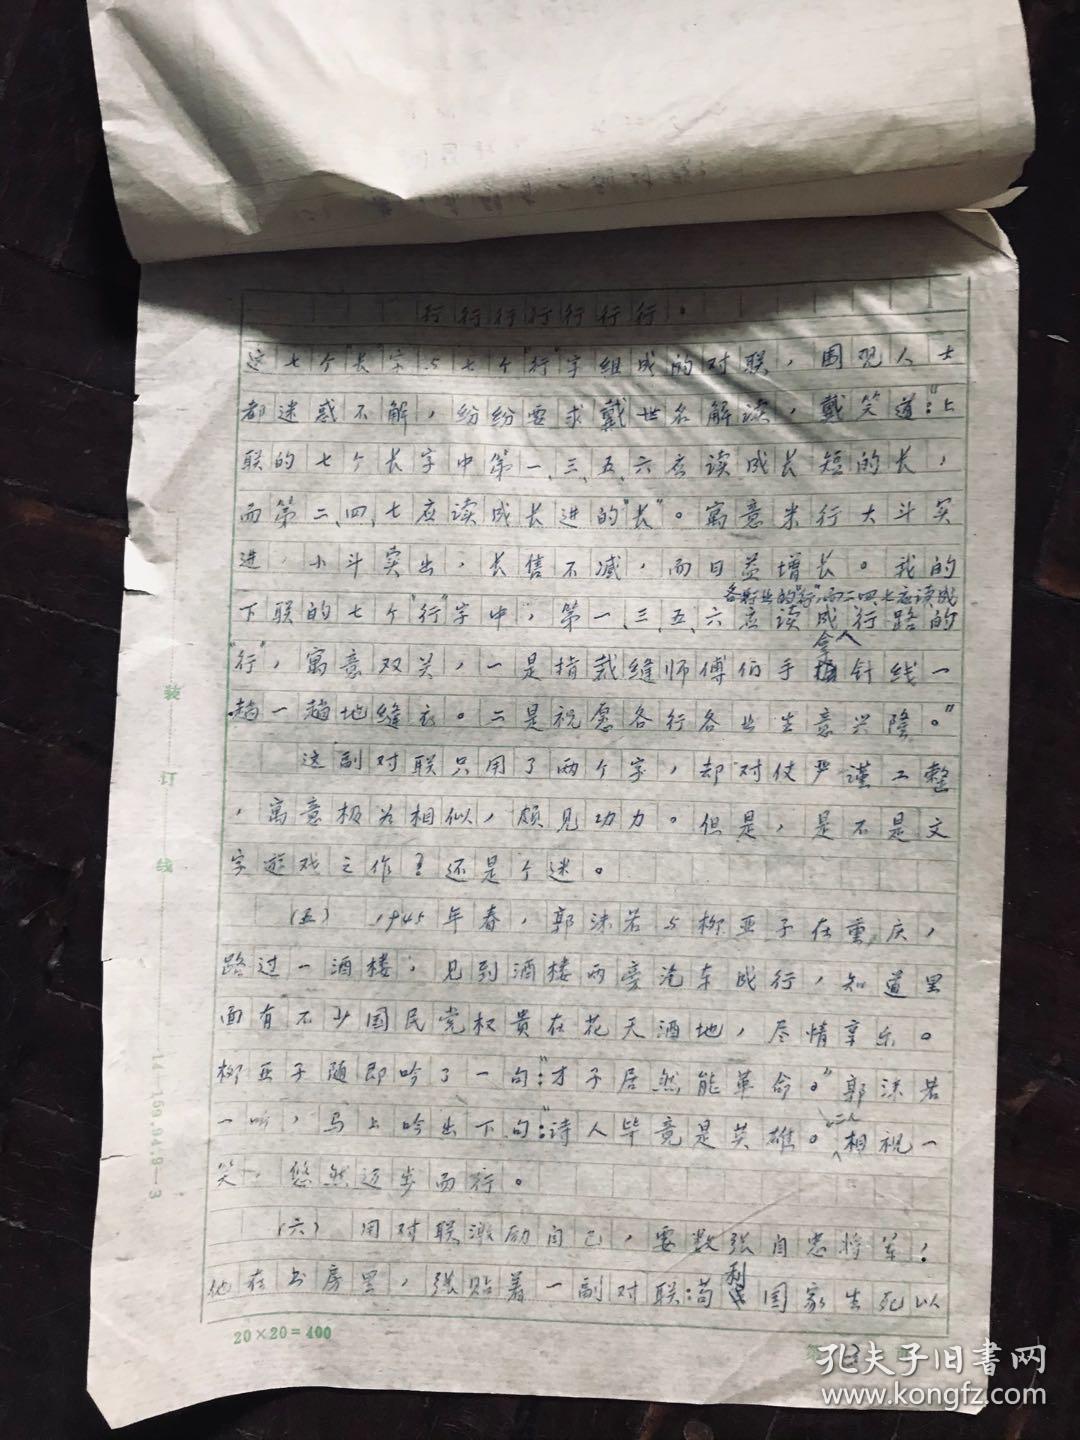 行行行行行行行。
这七个"长"字与七个"行"字组成的对联，围观人士
都迷惑不解，纷纷要求戴世名解读，戴笑道："上
联的七个长字中第一、三、五、六应读成长短的长，
而第二、四、七应读成长进的"长"。寓意米行大斗实
进，小斗实出，长售不减，而日益增长。我的
各行业的"行"，而二四七应读成
下联的七个"行"字中，第一、三、五、六应读成行路的
拿人
"行"，寓意双关，一是指裁缝师傅伯手针线一
趟一趟地缝衣。二是祝愿各行各业生意兴隆。"
这副对联只用了两个字，却对仗严谨工整
，寓意极为相似，颇见功力。但是，是不是文
字游戏之作？还是个迷。
（五） 1945年春，郭沫若与柳亚子在重庆，
路过一酒楼，见到酒楼两旁汽车成行，知道里
面有不少国民党权贵在花天酒地，尽情享乐。
柳亚子随即吟了一句："才子居然能革命。"郭沫若
一听，马上吟出下句："诗人毕竟是英雄。二人相视一
笑，悠然迈步而行。
（六） 用对联激励自己，要数张自忠将军，
他在书房里，张贴着一副对联：苟利国家生死以
20×20=400
第3页
装
订
线
14—169.94.9—3
孔夫子旧书网
www.kongfz.com